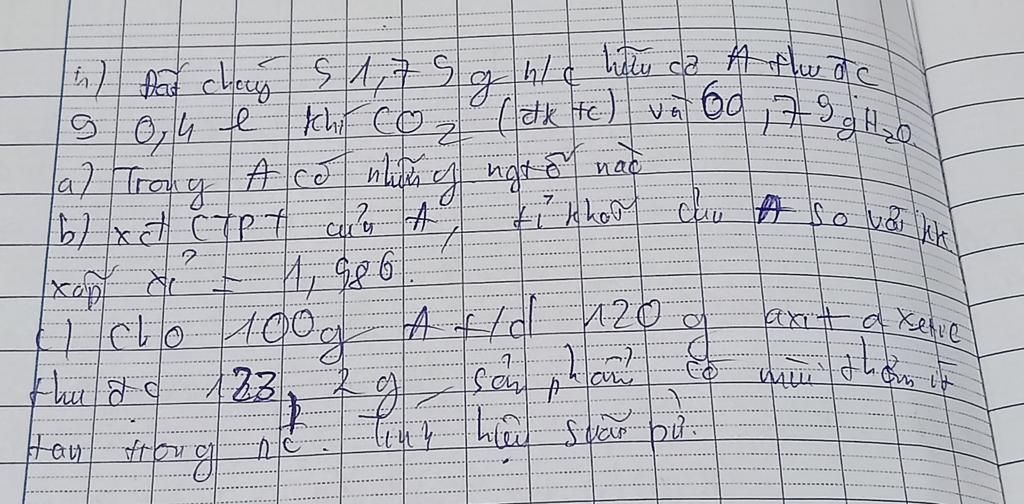 4) Đốt cháy 51,75 g h/c hữu cơ A thu đc
90,4 l khí CO2 (đk tc) và 60,75 g H2O
a) Trong A có những ngtố nào
b) xđ CTPT của A, tỉ khối của A so với kk
xấp xỉ = 1,586.
c) Cho 100g A t/d 120 g axit axetic
thu đc 123,2 g sản phẩm có mùi thơm ít
tan trong nc. Tính hiệu suất pứ.